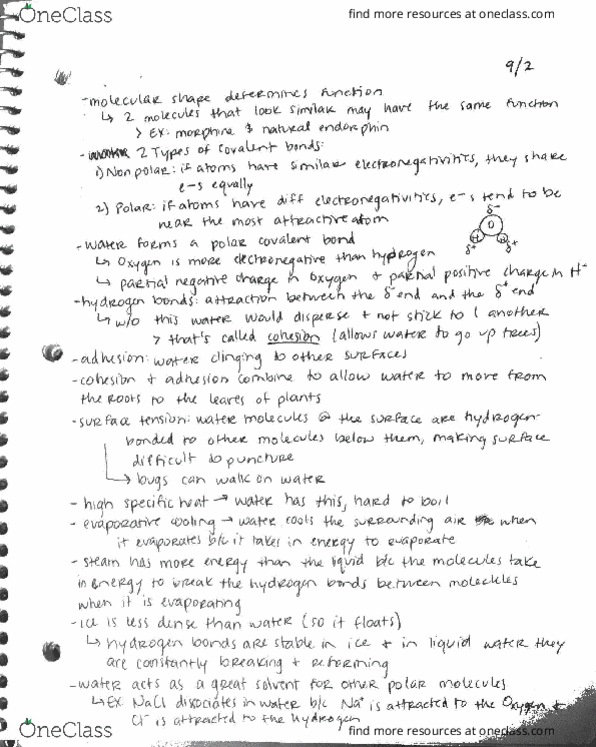 OneClass
find more resources at oneclass.com
9/2
-molecular shape determines function
↳ 2 molecules that look similar may have the same function
> Ex: morphine & natural endorphin
- 2 Types of covalent bonds:
1) Nonpolar: if atoms have similar electronegativities, they share
e-s equally
2) Polar: if atoms have diff electronegativities, e-s tend to be
near the most attractive atom
δ-
O
H H
δ+ δ+
-water forms a polar covalent bond
↳ Oxygen is more electronegative than hydrogen
↳ partial negative charge in oxygen + partial positive charge in H-
-hydrogen bonds: attraction between the δ- end and the δ+ end
↳ w/o this water would disperse + not stick to 1 another
> that's called cohesion (allows water to go up trees)
-adhesion: water clinging to other surfaces
-cohesion + adhesion combine to allow water to move from
the roots to the leaves of plants
-surface tension: water molecules @ the surface are hydrogen-
bonded to other molecules below them, making surface
difficult to puncture
→ bugs can walk on water
- high specific heat → water has this, hard to boil
- evaporative cooling → water cools the surrounding air when
it evaporates b/c it takes in energy to evaporate
- steam has more energy than the liquid b/c the molecules take
in energy to break the hydrogen bonds between molecules
when it is evaporating
-ice is less dense than water (so it floats)
↳ hydrogen bonds are stable in ice + in liquid water they
are constantly breaking + reforming
-water acts as a great solvent for other polar molecules
↳ Ex NaCl dissociates in water b/c Na+ is attracted to the Oxygen +
Cl- is attracted to the hydrogen
OneClass
find more resources at oneclass.com